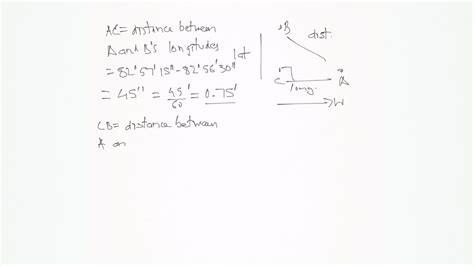 AC= distance between
A and B's longitudes
= 82°57'15"-82°56'30"
= 45" = 45'/60 = 0.75'
CB= distance between
A an
B
dist.
lat
C
A
long.
W